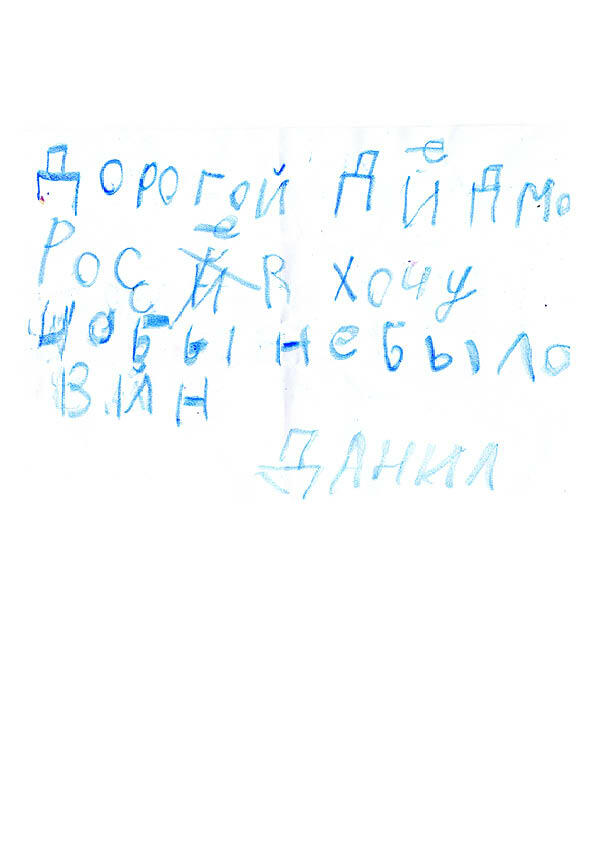 ДОРОГОЙ ДеДМо
РОСС Я ХОЧУ
ЩОБЫ НеБЫЛО
ВАЙН
ДАНИЛ